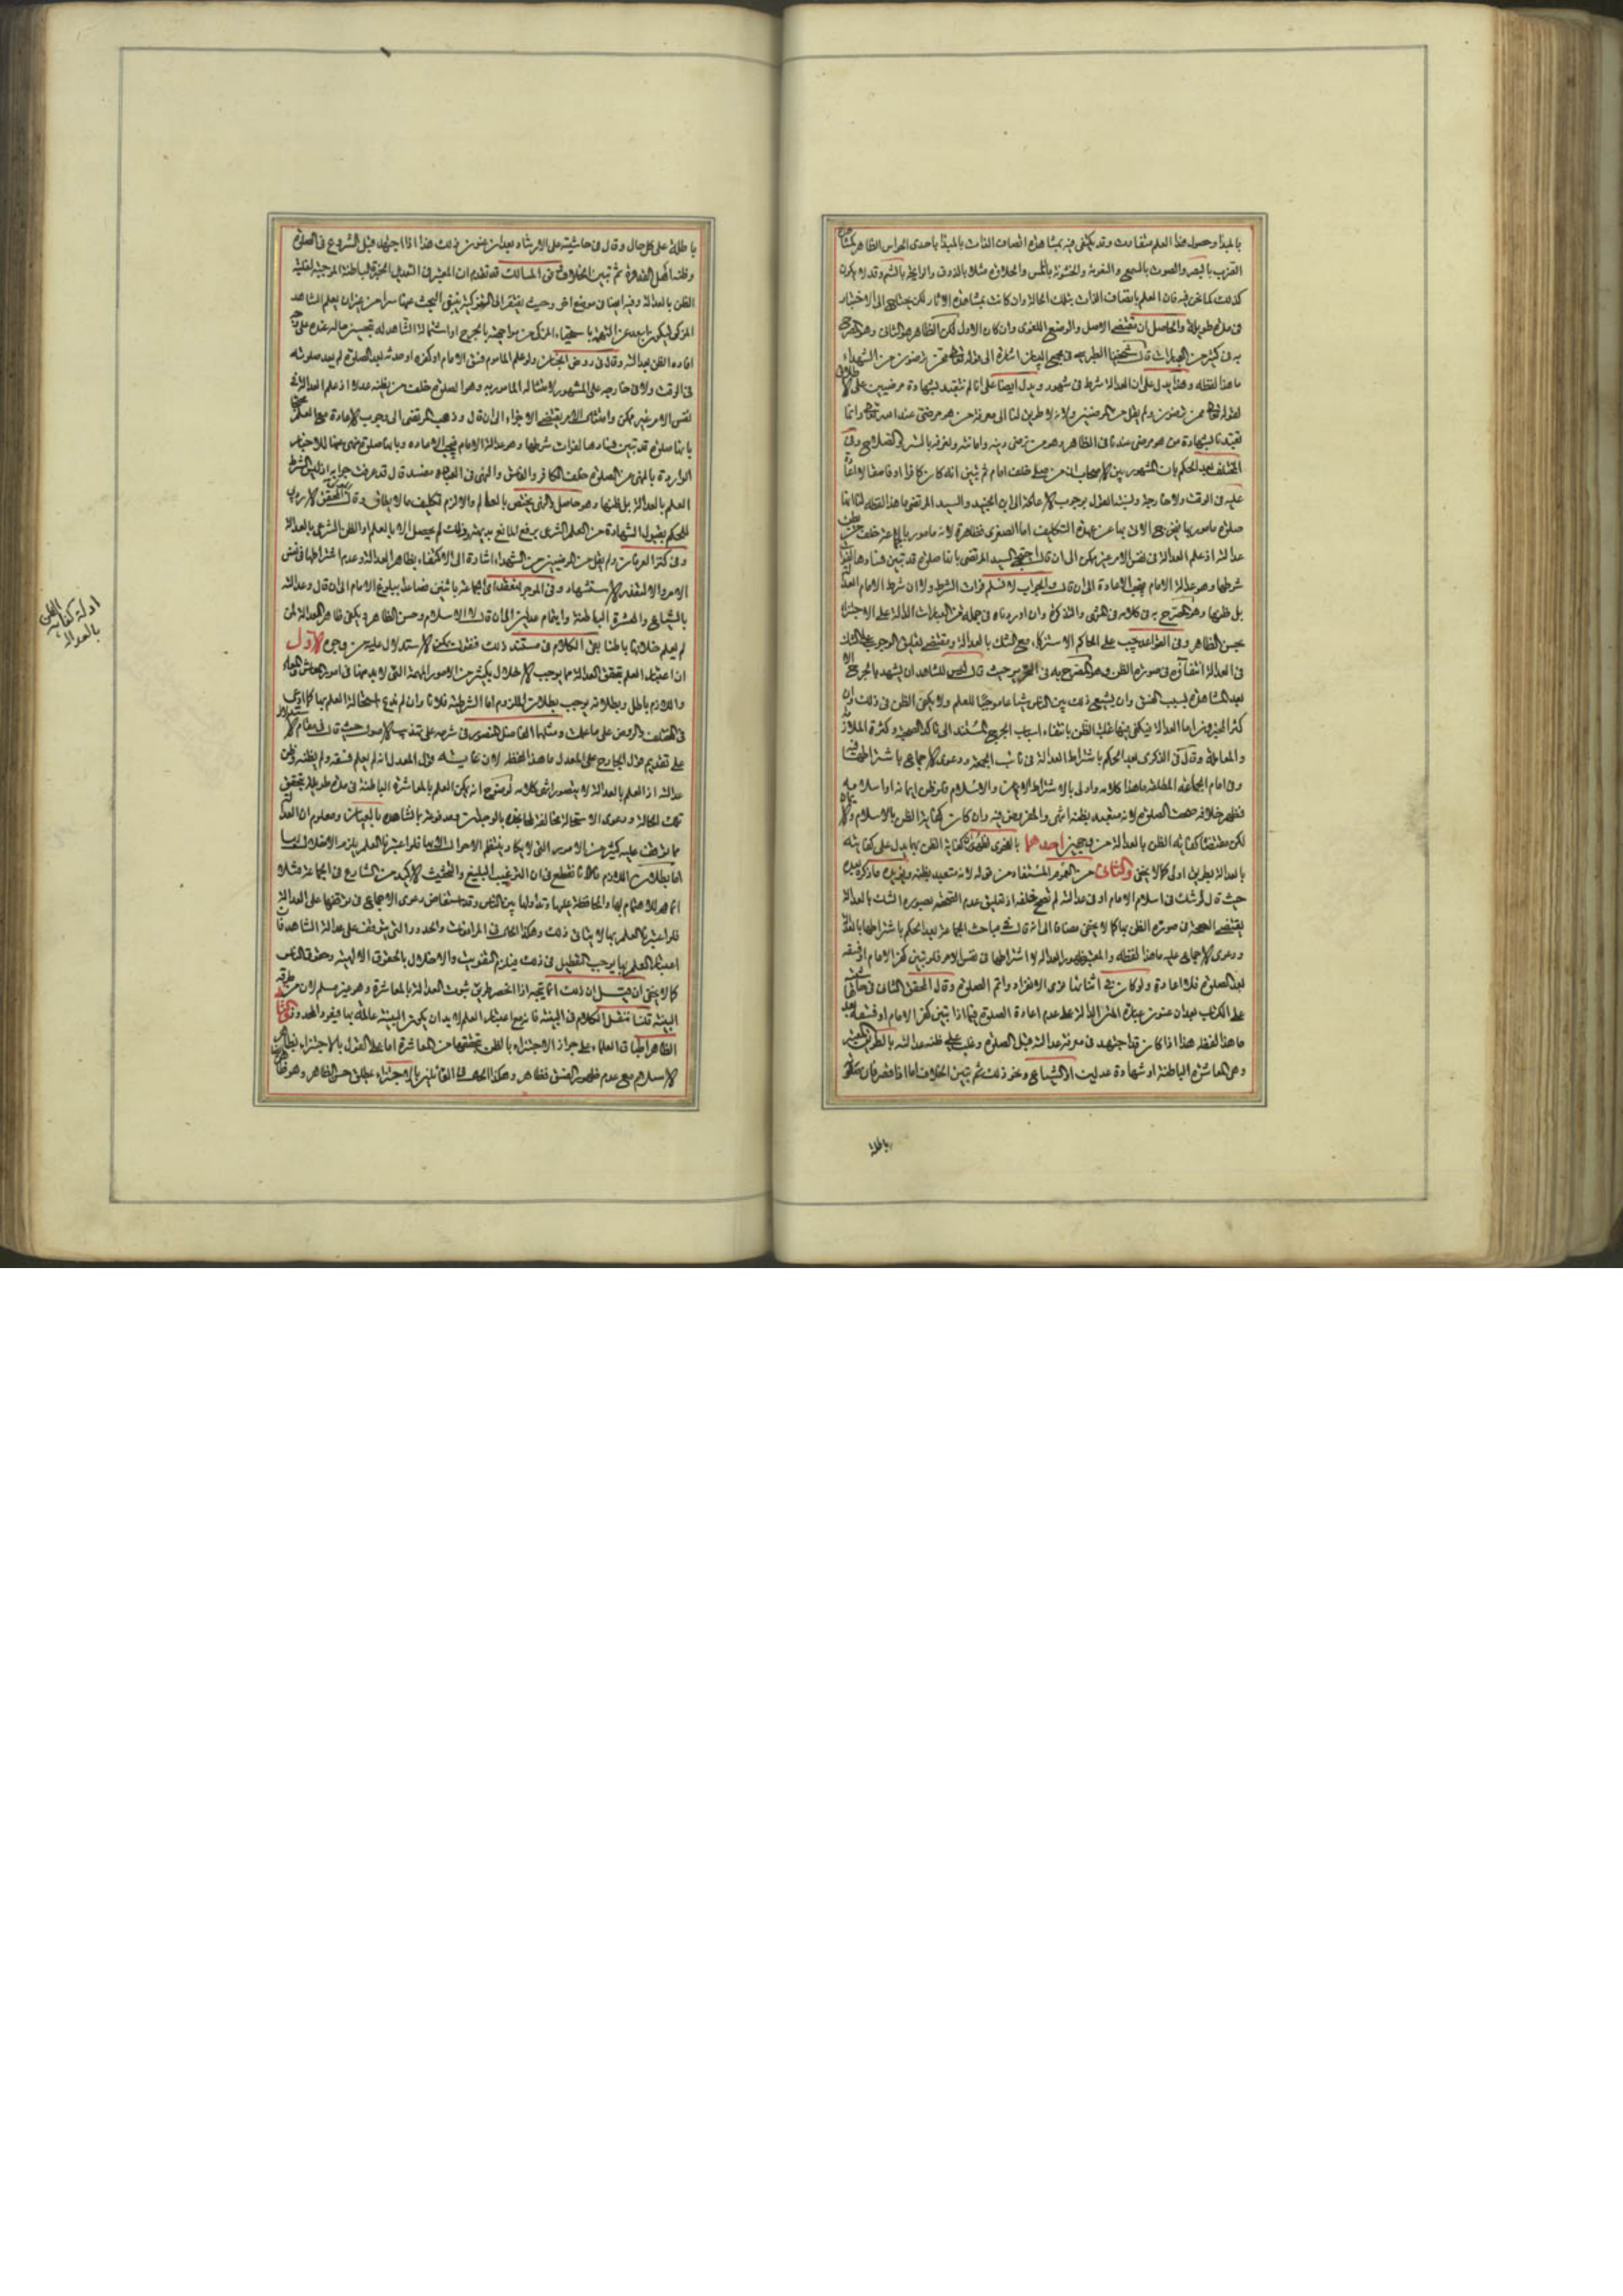 بالمبدا وحصول هذا العلم متفاوت وقد يكتفى فيه بمشاهدة اتصاف الذات بالمبدا باحدى الحواس الظاهرة
بالبصر والصوت بالسمع والنعومة والخشونة باللمس والحلاوة مثلا بالذوق والرايحة بالشم وقد لا يكون
كذلك كما نحن فيه فان العلم باتصاف الذات بتلك الحالة وان كانت بمشاهدة الاثار لكن يحتاج الى الاختبار
فى مدة طويلة والحاصل ان مقتضى الاصل والوضع اللغوى وان كان الاول لكن الظاهر هو الثانى وهو المصرح
به فى كثير من العبارات قال الطبرسى فى مجمع البيان اشارة الى قوله تعالى ممن ترضون من الشهداء
ما هذا لفظه وهذا يدل على ان العدالة شرط فى شهود ويدل ايضا على انا لم نتعبد بشهادة مرضيين على
لقوله تعالى ممن ترضون ولم يقل من المرضيين ولانه لا طريق لنا الى معرفة من هو مرضى عند الله تعالى وانما
تعبدنا بشهادة من هو مرضى عندنا فى الظاهر وهو من نرضى دينه وامانته ونعرفه بالستر والصلاح وفى
المختلف بعد الحكم بان المشهور بين الاصحاب ان من صلى خلف امام ثم تبين انه كان كافرا او فاسقا لا اعادة
عليه فى الوقت ولا خارجه ونسبة القول بوجوب الاعادة الى ابن الجنيد والسيد المرتضى ما هذا لفظه لنا انها
صلوة مامور بها فيخرج الاتى بها عن عهدة التكليف اما الصغرى فظاهرة لانه مامور بالصلوة خلف من يظن
عدالته اذ علم العدالة فى نفس الامر غير ممكن الى ان قال احتج السيد المرتضى بانها صلوة قد تبين فسادها لفوات
شرطها وهو عدالة الامام فيجب الاعادة الى ان قال والجواب لا نسلم فوات الشرط ولا ان شرط الامام العدالة
بل ظنها وهو المصرح به فى كلامه فى المنتهى والتذكرة وان اوردناه فى جملة من العبارات الدالة على الاجتزاء
بحسن الظاهر وفى القواعد يجب على الحاكم الاستزكاء مع الشك بالعدالة ومقتضى تعليق الوجوب على الشك
فى العدالة انتفاؤه فى صورة الظن وهو المصرح به فى التحرير حيث قال ليس للشاهد ان يشهد بالجرح الا
بعد المشاهدة لسبب الفسق وان يشيع ذلك بين الناس شياعا موجبا للعلم ولا يكفى الظن فى ذلك وان
كثر المخبرون اما العدالة فيكفى فيها غلبة الظن بانتفاء اسباب الجرح المستند الى تاكد الصحبة وكثرة الملازمة
والمعاملة وقال فى الذكرى بعد الحكم باشتراط العدالة فى نائب الجمعة ودعوى الاجماع باشتراطها فيه
وفى امام الجماعة المطلقة ما هذا كلامه واولى بالاشتراط الايمان والاسلام فلو ظن ايمانه او اسلامه
فظهر خلافه صحت الصلوة لانه متعبد بظنه انتهى والتعريض فيه وان كان كفاية الظن بالاسلام والايمان
لكن مقتضاه كفاية الظن بالعدالة من وجهين احدهما بالفحوى كفاية الظن بهما يدل على كفايته
بالعدالة بطريق اولى كما لا يخفى والثانى من العموم المستفاد من قوله لانه متعبد بظنه ويؤيده ما ذكره
حيث قال لو شك فى اسلام الامام او فى عدالته لم تصح خلفه اذ تعليق عدم الصحة بصورة الشك بالعدالة
يقتضى الصحة فى صورة الظن بها كما لا يخفى مضافا الى انه قال فى مباحث الجماعة بعد الحكم باشتراطها
ودعوى الاجماع عليه ما هذا لفظه والمعتبر ظهور العدالة لا اشتراطها فى نفس الامر فلو تبين كفر الامام او فسقه
بعد الصلوة فلا اعادة ولو كان فى اثنائها نوى الانفراد واتم الصلوة وقال المحقق الثانى فى حاشيته
على الكتاب بعد ان عنون عبارة المتن الدالة على عدم اعادة الصلوة فيما اذا تبين كفر الامام او فسقه بعد
ما هذا لفظه هذا اذا كان قد اجتهد فى معرفة عدالته قبل الصلوة وغلب على ظنه عدالته بالطريق المعتبر
وهى المعاشرة الباطنة او شهادة عدلين او الشياع ونحو ذلك ثم تبين الخلاف اما اذا قصر فان صلوته
باطلة
باطلة على كل حال وقال فى حاشيته على الارشاد بعد ان عنون ذلك هذا اذا اجتهد قبل الشروع فى الصلوة
وظنه اهل القدوة ثم تبين الخلاف وفى المسالك قد تقدم ان المعتبر فى التعديل الخبرة الباطنة الموجبة لغلبة
الظن بالعدالة وفيه ايضا فى موضع اخر وحيث يفتقر الى التزكية ينبغى البحث عنها سرا من غير ان يعلم الشاهد
المزكى ليكون ابعد عن التهمة باستحياء المزكى من مواجهته بالجرح او استمالة الشاهد له
افاده الظن بعدالته وقال فى روض الجنان ولو علم الماموم فسق الامام او كفره او حدثه بعد الصلوة لم يعد صلوته
فى الوقت ولا فى خارجه على المشهور لامتثاله المامور به وهو الصلوة خلف من يظنه عدلا اذ علم العدالة فى
نفس الامر غير ممكن وامتثال الامر يقتضى الاجزاء الى ان قال وذهب المرتضى الى وجوب الاعادة
بانها صلوة قد تبين فسادها لفوات شرطها وهو عدالة الامام فيجب الاعادة وبانها صلوة منهى عنها للاخبار
الواردة بالنهى عن الصلوة خلف الكافر والفاسق والنهى فى العبادة مفسد قال قد عرفت جوابه اذ ليس الشرط
العلم بالعدالة بل ظنها وهو حاصل والنهى يختص بالعالم والا لزم تكليف ما لا يطاق وقال المحقق الاردبيلى
للحكم بقبول الشهادة من العلم الشرعى برفع المانع وذلك لم يحصل الا بالعلم او الظن الشرعى بالعدالة
وفى كنز العرفان ولم يقل من المرضيين من الشهداء اشارة الى الاكتفاء بظاهر العدالة وعدم اشتراطها فى نفس
الامر والا لتعذر الاستشهاد وفى الموجز تنعقد الجماعة باثنين فصاعدا ببلوغ الامام الى ان قال وعدالته
بالشياع والعشرة الباطنة وايتمام عدلين الى ان قال لا الاسلام وحسن الظاهر ويكفى ظاهر العدالة لمن
لم يعلم خلافها باطنا بقى الكلام فى مستند ذلك فنقول يمكن الاستدلال عليه من وجوه الاول
ان اعتبار العلم بتحقق العدالة مما يوجب الاخلال بكثير من الامور المهمة التى لا بد منها فى امور المعاش والمعاد
واللازم باطل وبطلانه يوجب بطلان الملزوم اما الشرطية فلانا وان لم ندع استحالة العلم بها كما ادعى
فى المختلف والروض على ما علمت ومثلهما الفاضل فى شرحه على تهذيب الاصول حيث قال فى مقام الاستدلال
على تقديم قول الجارح على المعدل ما هذا لفظه لان غايته قول المعدل انه لم يعلم فسقه ولم يظنه وظن
عدالته اذ العلم بالعدالة لا يتصور انتهى كلامه لوضوح انه يمكن العلم بالمعاشرة الباطنة فى مدة طويلة بتحقق
تلك الحالة ودعوى الاستحالة مخالفة لما نجده بالوجدان بالمشاهدة بالعيان ومعلوم ان العدالة
مما يتوقف عليه كثير من الامور التى لا يكاد ينتظم الاحوال الا بها فلو اعتبرنا العلم يلزم الاخلال بها
اما بطلان اللازم فلانا نقطع فى ان الترغيب البليغ والتحثيث الاكيد من الشارع فى الجماعة مثلا
انما هو للاهتمام بها والمحافظة عليها وتداولها بين الناس وقد استفاض دعوى الاجماع فى توقفها على العدالة
فلو اعتبرنا العلم بها لا ينافى ذلك وهكذا الحال فى المرافعات والحدود التى يتوقف على عدالة الشاهد فان
اعتبار العلم بها يوجب التعطيل فى ذلك فيلزم التفويت والاخلال بالحقوق الالهية وحقوق الناس
كما لا يخفى ان قيل ان ذلك انما يتجه اذا انحصر طريق ثبوت العدالة بالمعاشرة وهو غير مسلم لان من طرقه
البينة قلنا ننقل الكلام فى البينة فانه مع اعتبار العلم لا بد ان يكون البينة عالمة بها فيعود المحذور الثانى
الظاهر اطباق العلماء على جواز الاجتزاء بالظن بتحققها من المعاشرة اما على القول بالاجتزاء بظاهر
الاسلام مع عدم ظهور الفسق فظاهر وهكذا الحال فى القائلين بالاجتزاء بمطلق حسن الظاهر وهو ظاهر
ادلة كفاية الظن
بالعدالة